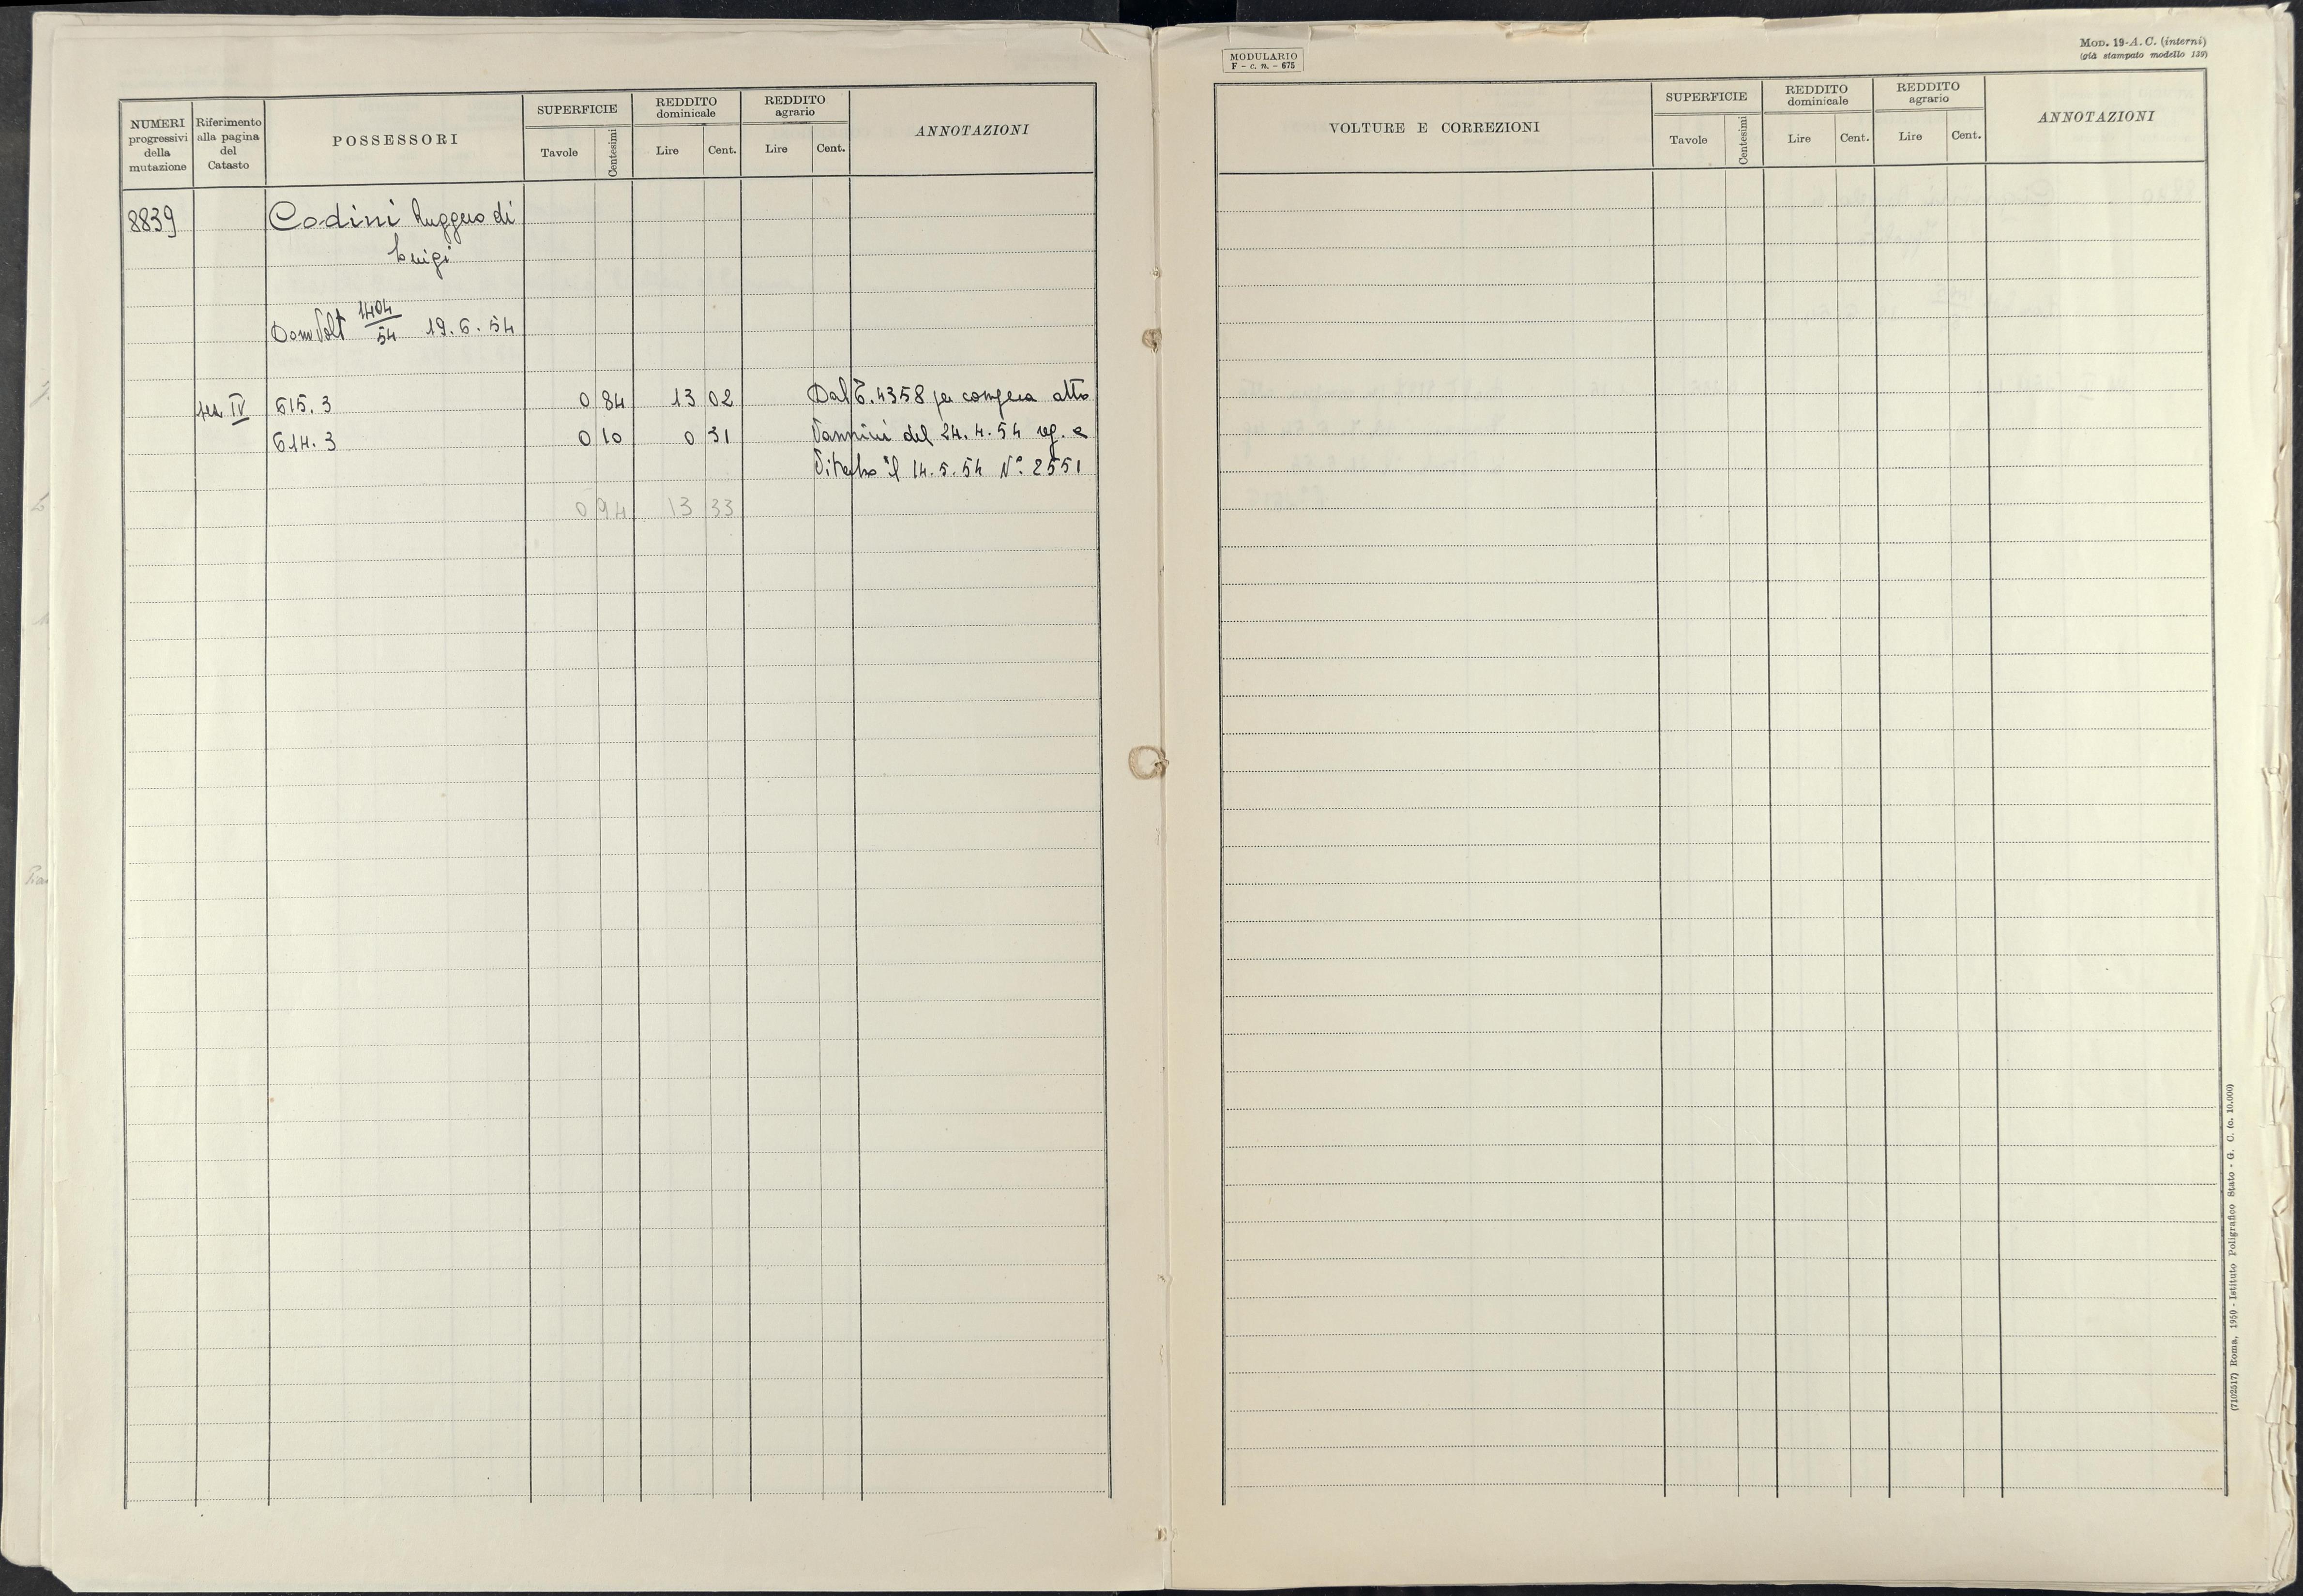 NUMERI progressivi della mutazione
Riferimento alla pagina del Catasto
POSSESSORI
SUPERFICIE
Tavole Centesimi
REDDITO dominicale
Lire Cent.
REDDITO agrario
Lire Cent.
ANNOTAZIONI
8839 Codini Ruggero di
Luigi
Dom Volt 1404/54 19.6.54
sez IV 615.3 0 84 13 02 Dal C. 4358 per compera atto
614.3 0 10 0 31 Vannini del 24.4.54 reg. a
Viterbo il 14.5.54 N° 2551
0 94 13 33
MODULARIO
F - c. n. - 675
MOD. 19-A. C. (interni)
(già stampato modello 139)
VOLTURE E CORREZIONI
SUPERFICIE
Tavole Centesimi
REDDITO dominicale
Lire Cent.
REDDITO agrario
Lire Cent.
ANNOTAZIONI
(7102517) Roma, 1950 - Istituto Poligrafico Stato - G. C. (c. 10.000)